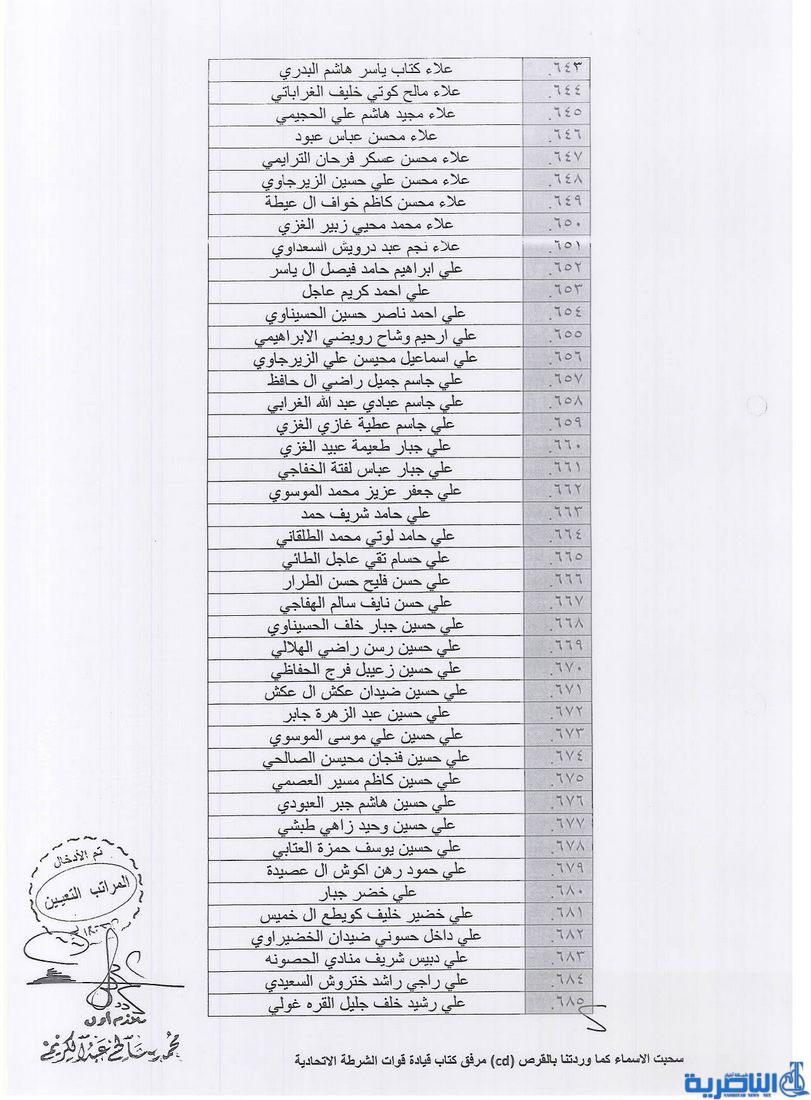 ٦٤٣. علاء كتاب ياسر هاشم البدري
٦٤٤. علاء مالح كوتي خليف الغراباتي
٦٤٥. علاء مجيد هاشم علي الحجيمي
٦٤٦. علاء محسن عباس عبود
٦٤٧. علاء محسن عسكر فرحان الترايمي
٦٤٨. علاء محسن علي حسين الزيرجاوي
٦٤٩. علاء محسن كاظم خواف ال عيطة
٦٥٠. علاء محمد محيي زبير الغزي
٦٥١. علاء نجم عبد درويش السعداوي
٦٥٢. علي ابراهيم حامد فيصل ال ياسر
٦٥٣. علي احمد كريم عاجل
٦٥٤. علي احمد ناصر حسين الحسيناوي
٦٥٥. علي ارحيم وشاح رويضي الابراهيمي
٦٥٦. علي اسماعيل محيسن علي الزيرجاوي
٦٥٧. علي جاسم جميل راضي ال حافظ
٦٥٨. علي جاسم عبادي عبد الله الغرابي
٦٥٩. علي جاسم عطية غازي الغزي
٦٦٠. علي جبار طعيمة عبيد الغزي
٦٦١. علي جبار عباس لفتة الخفاجي
٦٦٢. علي جعفر عزيز محمد الموسوي
٦٦٣. علي حامد شريف حمد
٦٦٤. علي حامد لوتي محمد الطلقاني
٦٦٥. علي حسام تقي عاجل الطائي
٦٦٦. علي حسن فليح حسن الطرار
٦٦٧. علي حسن نايف سالم الهفاجي
٦٦٨. علي حسين جبار خلف الحسيناوي
٦٦٩. علي حسين رسن راضي الهلالي
٦٧٠. علي حسين زعيبل فرج الحفاظي
٦٧١. علي حسين ضيدان عكش ال عكش
٦٧٢. علي حسين عبد الزهرة جابر
٦٧٣. علي حسين علي موسى الموسوي
٦٧٤. علي حسين فنجان محيسن الصالحي
٦٧٥. علي حسين كاظم مسير العصمي
٦٧٦. علي حسين هاشم جبر العبودي
٦٧٧. علي حسين وحيد زاهي طبشي
٦٧٨. علي حسين يوسف حمزة العتابي
٦٧٩. علي حمود رهن اكوش ال عصيدة
٦٨٠. علي خضر جبار
٦٨١. علي خضير خليف كويطع ال خميس
٦٨٢. علي داخل حسوني ضيدان الخضيراوي
٦٨٣. علي دبيس شريف منادي الحصونه
٦٨٤. علي راجي راشد ختروش السعيدي
٦٨٥. علي رشيد خلف جليل القره غولي
تم الأدخال
المراتب التعيين
ملازم اول
محمد صالح عبد الكريم
سحبت الاسماء كما وردتنا بالقرص (cd) مرفق كتاب قيادة قوات الشرطة الاتحادية
شبكة أخبار
الناصرية
NASIRIYAH NEWS NET